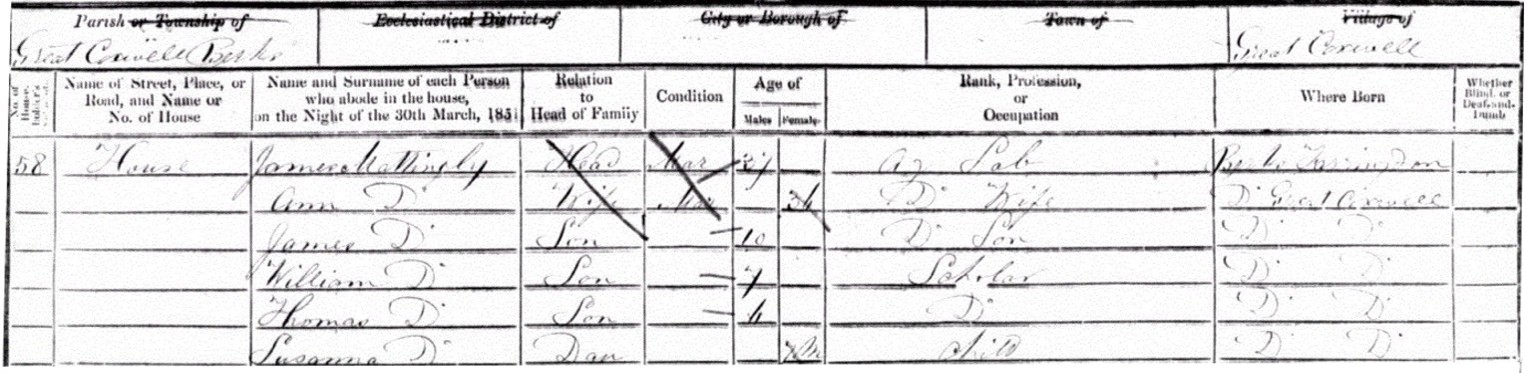 Parish or Township of Ecclesiastical District of City or Borough of Town of Village of
Great Coxwell Berks Great Coxwell
No. of House-holder's Name of Street, Place, or Road, and Name or No. of House Name and Surname of each Person who abode in the house, on the Night of the 30th March, 1851 Relation to Head of Family Condition Age of Males Females Rank, Profession, or Occupation Where Born Whether Blind, or Deaf-and-Dumb
58 House James Mattingly Head Mar Ag Lab Berks Farringdon
Ann Do Wife Mar Do Wife Do Great Coxwell
James Do Son 10 Do Son Do Do
William Do Son 7 Scholar Do Do
Thomas Do Son Do Do Do
Susanna Do Dau Child Do Do